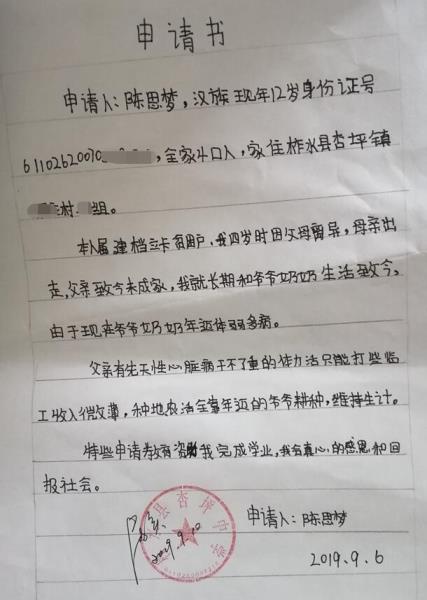 申请书
申请人：陈思梦，汉族现年12岁身份证号
6110262007，全家4口人，家住柞水县杏坪镇
村组。
本人属建档立卡贫困户，我四岁时因父母离异，母亲出
走，父亲致今未成家，我就长期和爷爷奶奶生活致今，
由于现在爷爷奶奶年迈体弱多病。
父亲有先天性心脏病干不了重的体力活只能打些临
工收入微薄，种地农活全靠年迈的爷爷耕种，维持生计。
特些申请教育资助我完成学业，我会真心的感恩和回
报社会。
县杏坪中学
2019.9.10
申请人：陈思梦
2019.9.6